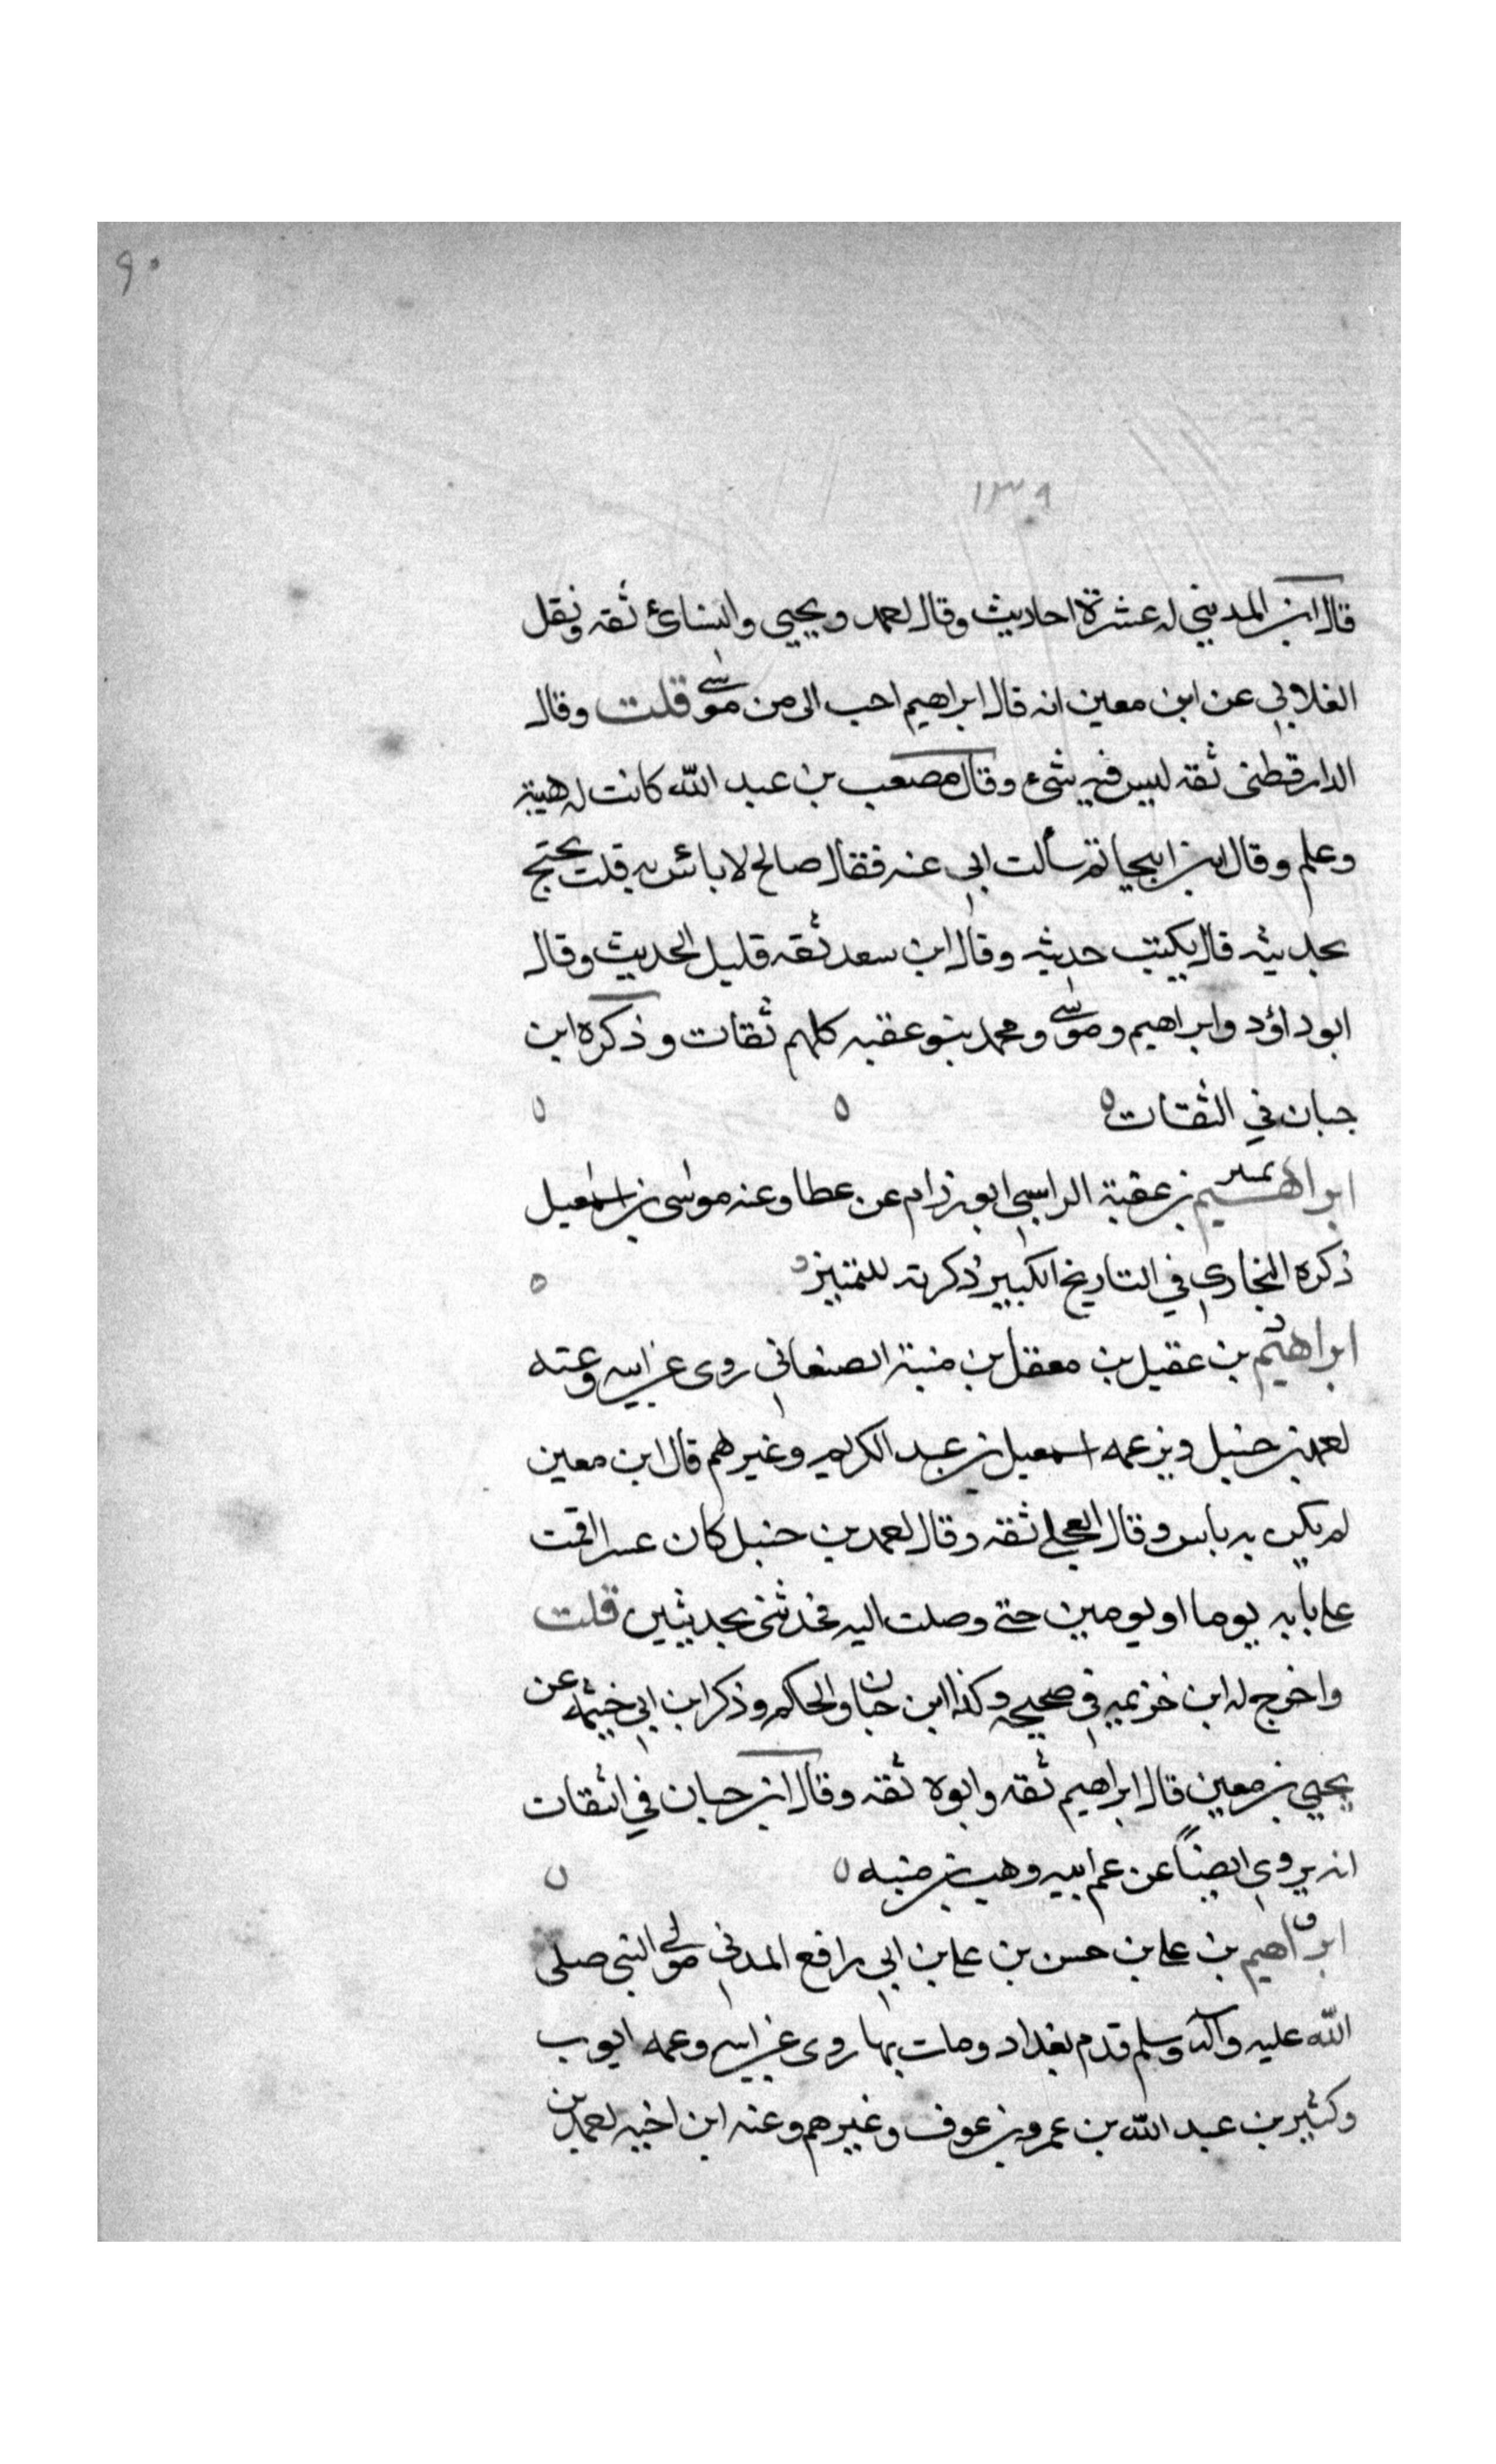 ٩٠
١٣٩
قال ابن المديني له عشرة احاديث وقال احمد ويحيي والنسائ ثقه ونقل
الغلابي عن ابن معين انه قال ابراهيم احب الى من موسى قلت وقال
الدارقطنى ثقه ليس فيه شىء وقال مصعب بن عبد الله كانت له هيئة
وعلم وقال ابن ابيحاتم سألت ابي عنه فقال صالح لا بائس به قلت يحتج
بحديثه قال يكتب حديثه وقال ابن سعد ثقه قليل الحديث وقال
ابو داؤد وابراهيم وموسى ومحمد بنو عقبه كلهم ثقات وذكره ابن
حبان في الثقات ه ه ه
ابراهيم تمييز بن عقبة الراسبي ابو رزام عن عطا وعنه موسى بن اسمعيل
ذكره البخاري في التاريخ الكبير ذكرته للتمييز ه
ابراهيم د بن عقيل بن معقل بن منبة الصنعاني روى عن ابيه وعنه
احمد بن حنبل وبن عمه اسمعيل بن عبد الكريم وغيرهم قال ابن معين
لم يكن به باس وقال العجلي ثقه وقال احمد بن حنبل كان عسرا قمت
على بابه يوما او يومين حتى وصلت اليه فحدثنى بحديثين قلت
واخرج له ابن خزيمه في صحيحه وكذا ابن حبان والحاكم وذكر ابن ابي خيثمه عن
يحيي بن معين قال ابراهيم ثقه وابوه ثقه وقال ابن حبان في الثقات
انه يروي ايضاً عن عم ابيه وهب بن منبه ه ه
ابراهيم ق بن على بن حسن بن على بن ابي رافع المدني مولى النبى صلى
الله عليه وآله وسلم قدم بغداد ومات بها روى عن ابيه وعمه ايوب
وكثير بن عبد الله بن عمرو بن عوف وغيرهم وعنه ابن اخيه احمد بن